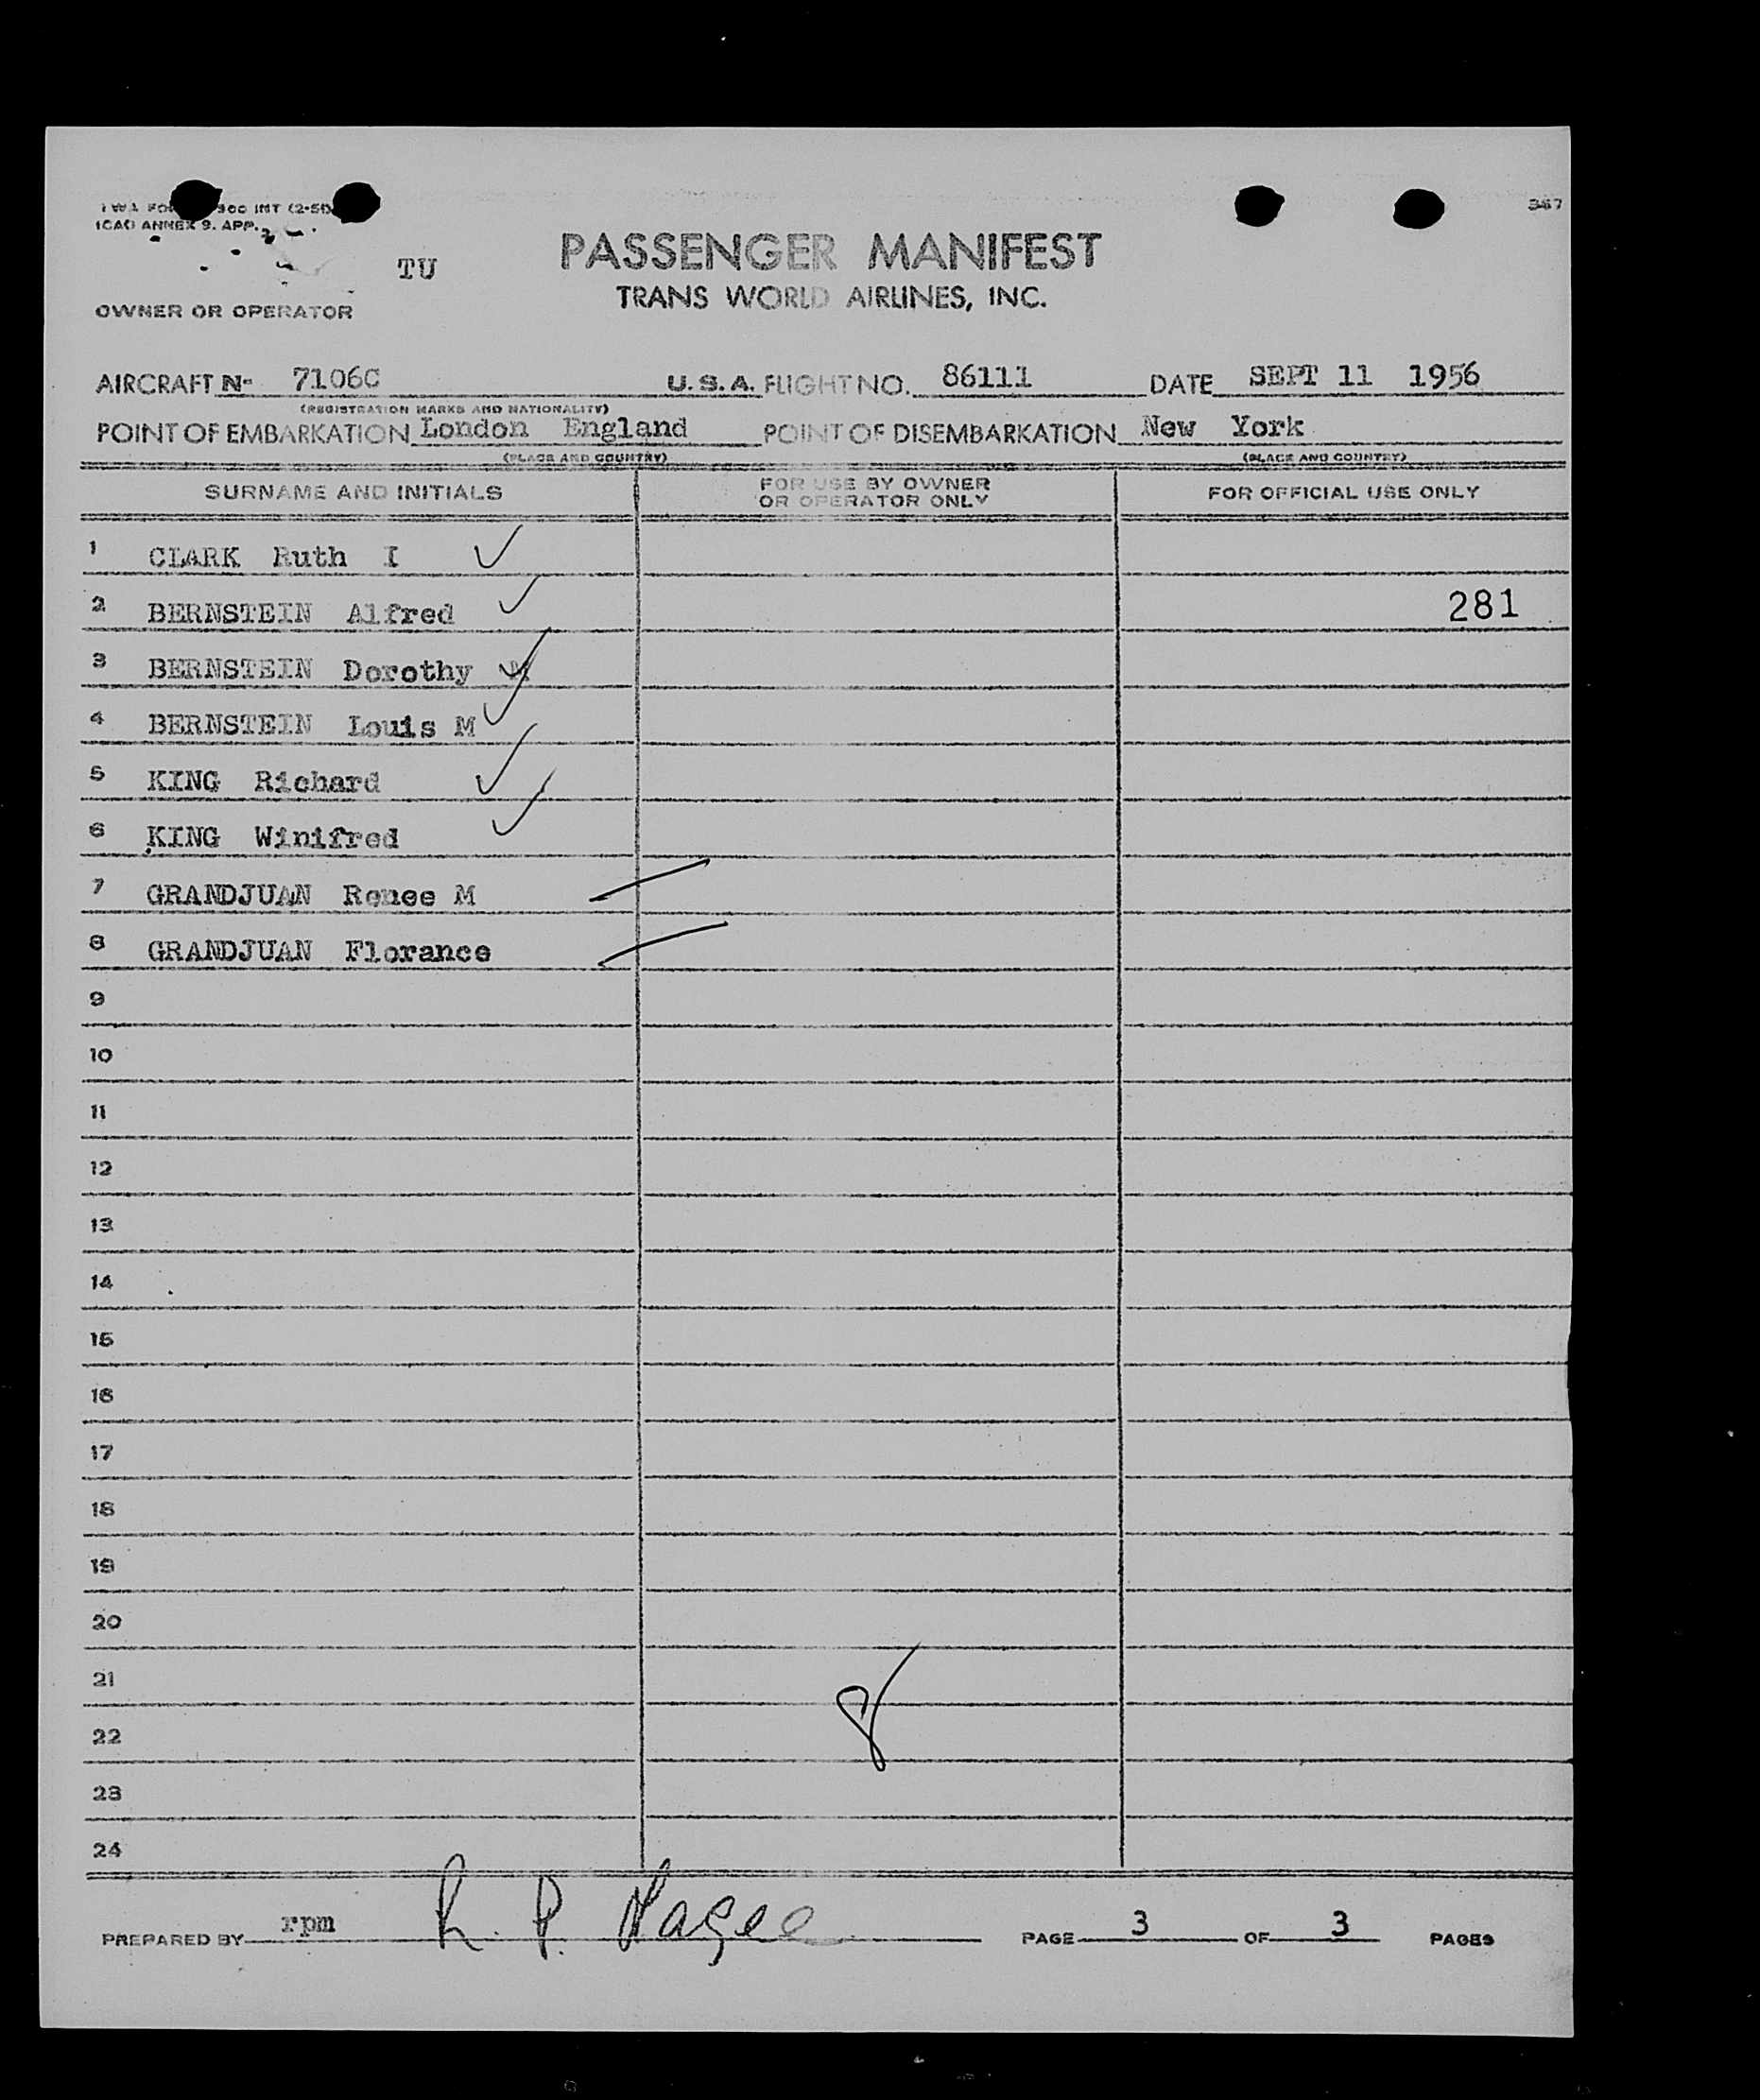 TWA FO 300 INT (2-51)
347
ICAO ANNEX 9. APP. 2
TU
PASSENGER MANIFEST
TRANS WORLD AIRLINES, INC.
OWNER OR OPERATOR
AIRCRAFT N- 7106C U. S. A. FLIGHT NO. 86111 DATE SEPT 11 1956
(REGISTRATION MARKS AND NATIONALITY)
POINT OF EMBARKATION London England POINT OF DISEMBARKATION New York
(PLACE AND COUNTRY) (PLACE AND COUNTRY)
SURNAME AND INITIALS FOR USE BY OWNER OR OPERATOR ONLY FOR OFFICIAL USE ONLY
1 CLARK Ruth I
2 BERNSTEIN Alfred 281
3 BERNSTEIN Dorothy M
4 BERNSTEIN Louis M
5 KING Richard
6 KING Winifred
7 GRANDJUAN Renee M
8 GRANDJUAN Florance
9
10
11
12
13
14
15
16
17
18
19
20
21
8
22
23
24
PREPARED BY rpm R. P. Magee PAGE 3 OF 3 PAGES